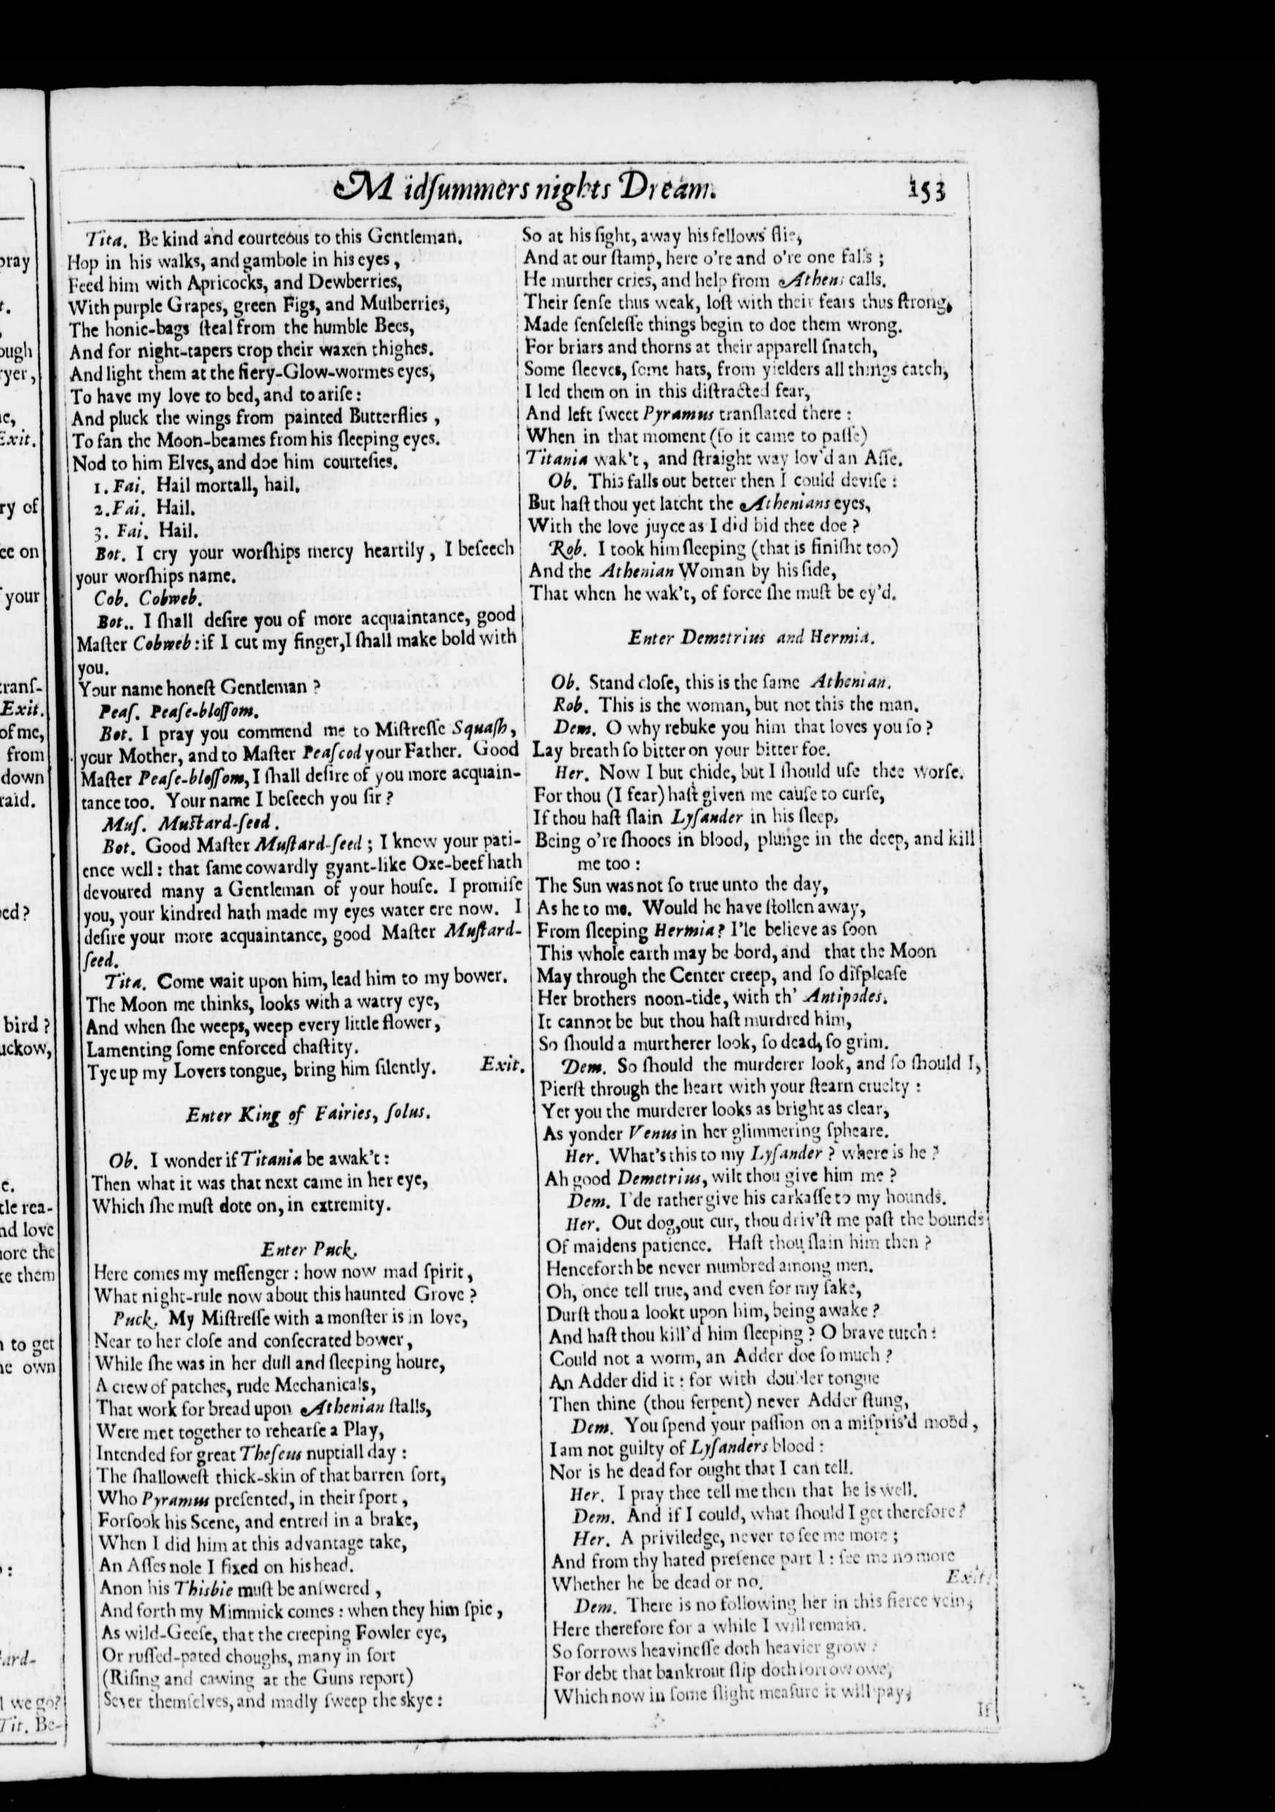 Midſummers nights Dream.
153
Tita. Be kind and courteous to this Gentleman.
Hop in his walks, and gambole in his eyes,
Feed him with Apricocks, and Dewberries,
With purple Grapes, green Figs, and Mulberries,
The honie-bags ſteal from the humble Bees,
And for night-tapers crop their waxen thighes.
And light them at the fiery-Glow-wormes eyes,
To have my love to bed, and to ariſe:
And pluck the wings from painted Butterflies,
To fan the Moon-beames from his ſleeping eyes.
Nod to him Elves, and doe him courteſies.
1. Fai. Hail mortall, hail.
2. Fai. Hail.
3. Fai. Hail.
Bot. I cry your worſhips mercy heartily, I beſeech
your worſhips name.
Cob. Cobweb.
Bot.. I ſhall deſire you of more acquaintance, good
Maſter Cobweb: if I cut my finger, I ſhall make bold with
you.
Your name honeſt Gentleman?
Peaſ. Peaſe-bloſſom.
Bot. I pray you commend me to Miſtreſſe Squaſh,
your Mother, and to Maſter Peaſcod your Father. Good
Maſter Peaſe-bloſſom, I ſhall deſire of you more acquain-
tance too. Your name I beſeech you ſir?
Muſ. Muſtard-ſeed.
Bot. Good Maſter Muſtard-ſeed; I know your pati-
ence well: that ſame cowardly gyant-like Oxe-beef hath
devoured many a Gentleman of your houſe. I promiſe
you, your kindred hath made my eyes water ere now. I
deſire your more acquaintance, good Maſter Muſtard-
ſeed.
Tita. Come wait upon him, lead him to my bower.
The Moon me thinks, looks with a watry eye,
And when ſhe weeps, weep every little flower,
Lamenting ſome enforced chaſtity.
Tye up my Lovers tongue, bring him ſilently. Exit.
Enter King of Fairies, ſolus.
Ob. I wonder if Titania be awak't:
Then what it was that next came in her eye,
Which ſhe muſt dote on, in extremity.
Enter Puck.
Here comes my meſſenger: how now mad ſpirit,
What night-rule now about this haunted Grove?
Puck. My Miſtreſſe with a monſter is in love,
Near to her cloſe and conſecrated bower,
While ſhe was in her dull and ſleeping houre,
A crew of patches, rude Mechanicals,
That work for bread upon Athenian ſtalls,
Were met together to rehearſe a Play,
Intended for great Theſeus nuptiall day:
The ſhalloweſt thick-skin of that barren ſort,
Who Pyramus preſented, in their ſport,
Forſook his Scene, and entred in a brake,
When I did him at this advantage take,
An Aſſes nole I fixed on his head.
Anon his Thisbie muſt be anſwered,
And forth my Mimmick comes: when they him ſpie,
As wild-Geeſe, that the creeping Fowler eye,
Or ruſſed-pated choughs, many in ſort
(Riſing and cawing at the Guns report)
Sever themſelves, and madly ſweep the skye:
So at his ſight, away his fellows flie,
And at our ſtamp, here o're and o're one falls;
He murther cries, and help from Athens calls.
Their ſenſe thus weak, loſt with their fears thus ſtrong,
Made ſenſeleſſe things begin to doe them wrong.
For briars and thorns at their apparell ſnatch,
Some ſleeves, ſome hats, from yielders all things catch,
I led them on in this diſtracted fear,
And left ſweet Pyramus tranſlated there:
When in that moment (ſo it came to paſſe)
Titania wak't, and ſtraight way lov'd an Aſſe.
Ob. This falls out better then I could deviſe:
But haſt thou yet latcht the Athenians eyes,
With the love juyce as I did bid thee doe?
Rob. I took him ſleeping (that is finiſht too)
And the Athenian Woman by his ſide,
That when he wak't, of force ſhe muſt be ey'd.
Enter Demetrius and Hermia.
Ob. Stand cloſe, this is the ſame Athenian.
Rob. This is the woman, but not this the man.
Dem. O why rebuke you him that loves you ſo?
Lay breath ſo bitter on your bitter foe.
Her. Now I but chide, but I ſhould uſe thee worſe.
For thou (I fear) haſt given me cauſe to curſe,
If thou haſt ſlain Lyſander in his ſleep,
Being o're ſhooes in blood, plunge in the deep, and kill
me too:
The Sun was not ſo true unto the day,
As he to me. Would he have ſtollen away,
From ſleeping Hermia? I'le believe as ſoon
This whole earth may be bord, and that the Moon
May through the Center creep, and ſo diſpleaſe
Her brothers noon-tide, with th' Antipodes.
It cannot be but thou haſt murdred him,
So ſhould a murtherer look, ſo dead, ſo grim.
Dem. So ſhould the murderer look, and ſo ſhould I,
Pierſt through the heart with your ſtearn cruelty:
Yet you the murderer looks as bright as clear,
As yonder Venus in her glimmering ſpheare.
Her. What's this to my Lyſander? where is he?
Ah good Demetrius, wilt thou give him me?
Dem. I'de rather give his carkaſſe to my hounds.
Her. Out dog, out cur, thou driv'ſt me paſt the bounds
Of maidens patience. Haſt thou ſlain him then?
Henceforth be never numbred among men.
Oh, once tell true, and even for my ſake,
Durſt thou a lookt upon him, being awake?
And haſt thou kill'd him ſleeping? O brave tutch:
Could not a worm, an Adder doe ſo much?
An Adder did it: for with doubler tongue
Then thine (thou ſerpent) never Adder ſtung,
Dem. You ſpend your paſſion on a miſpris'd mood,
I am not guilty of Lyſanders blood:
Nor is he dead for ought that I can tell.
Her. I pray thee tell me then that he is well.
Dem. And if I could, what ſhould I get therefore?
Her. A priviledge, never to ſee me more;
And from thy hated preſence part I: ſee me no more
Whether he be dead or no. Exit.
Dem. There is no following her in this fierce vein,
Here therefore for a while I will remain.
So ſorrows heavineſſe doth heavier grow:
For debt that bankrout ſlip doth ſorrow owe,
Which now in ſome ſlight meaſure it will pay,
If